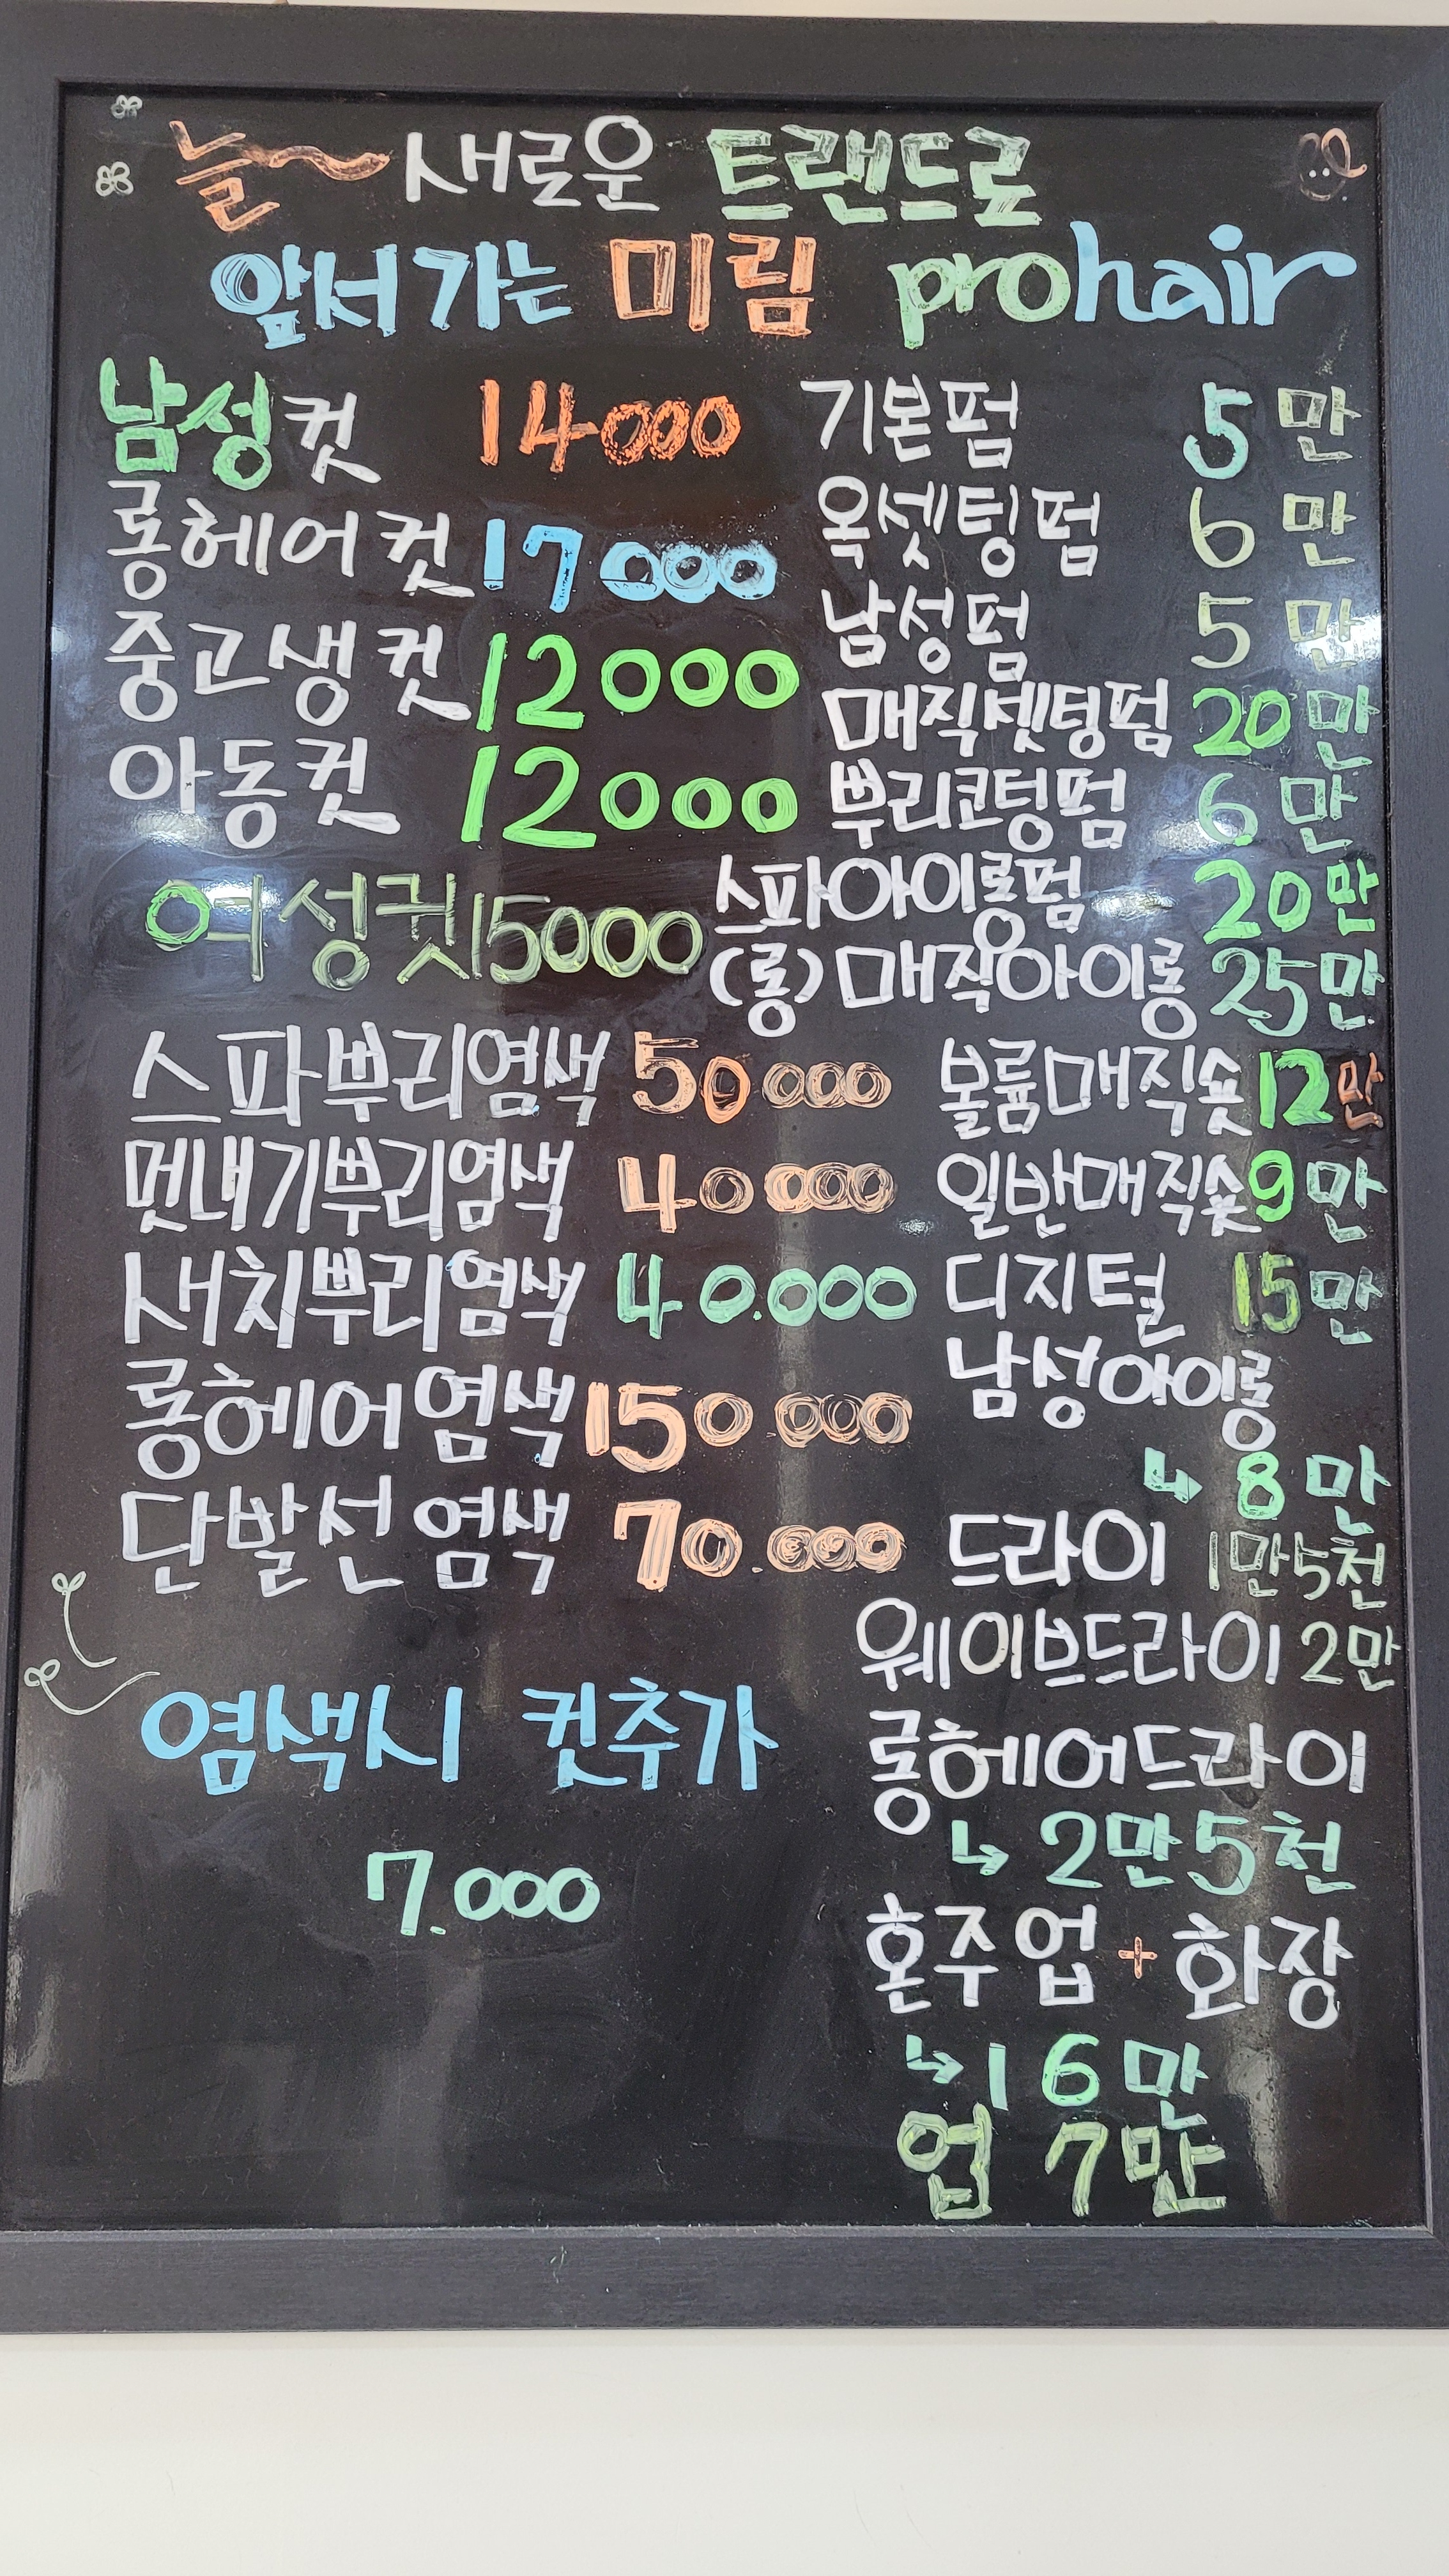 늘~ 새로운 트랜드로
앞서가는 미림 prohair
남성컷 14000
롱헤어컷 17000
중고생컷 12000
아동컷 12000
여성컷 15000
스파뿌리염색 50000
멋내기뿌리염색 40000
새치뿌리염색 40.000
롱헤어염색 150000
단발선염색 70.000
염색시 컷추가
7.000
기본펌 5만
옥셋팅펌 6만
남성펌 5만
매직셋팅펌 20만
뿌리코팅펌 6만
스파아이롱펌 20만
(롱)매직아이롱 25만
볼륨매직숏 12만
일반매직숏 9만
디지털 15만
남성아이롱
↳ 8만
드라이 1만5천
웨이브드라이 2만
롱헤어드라이
↳ 2만5천
혼주업+화장
↳ 16만
업 7만